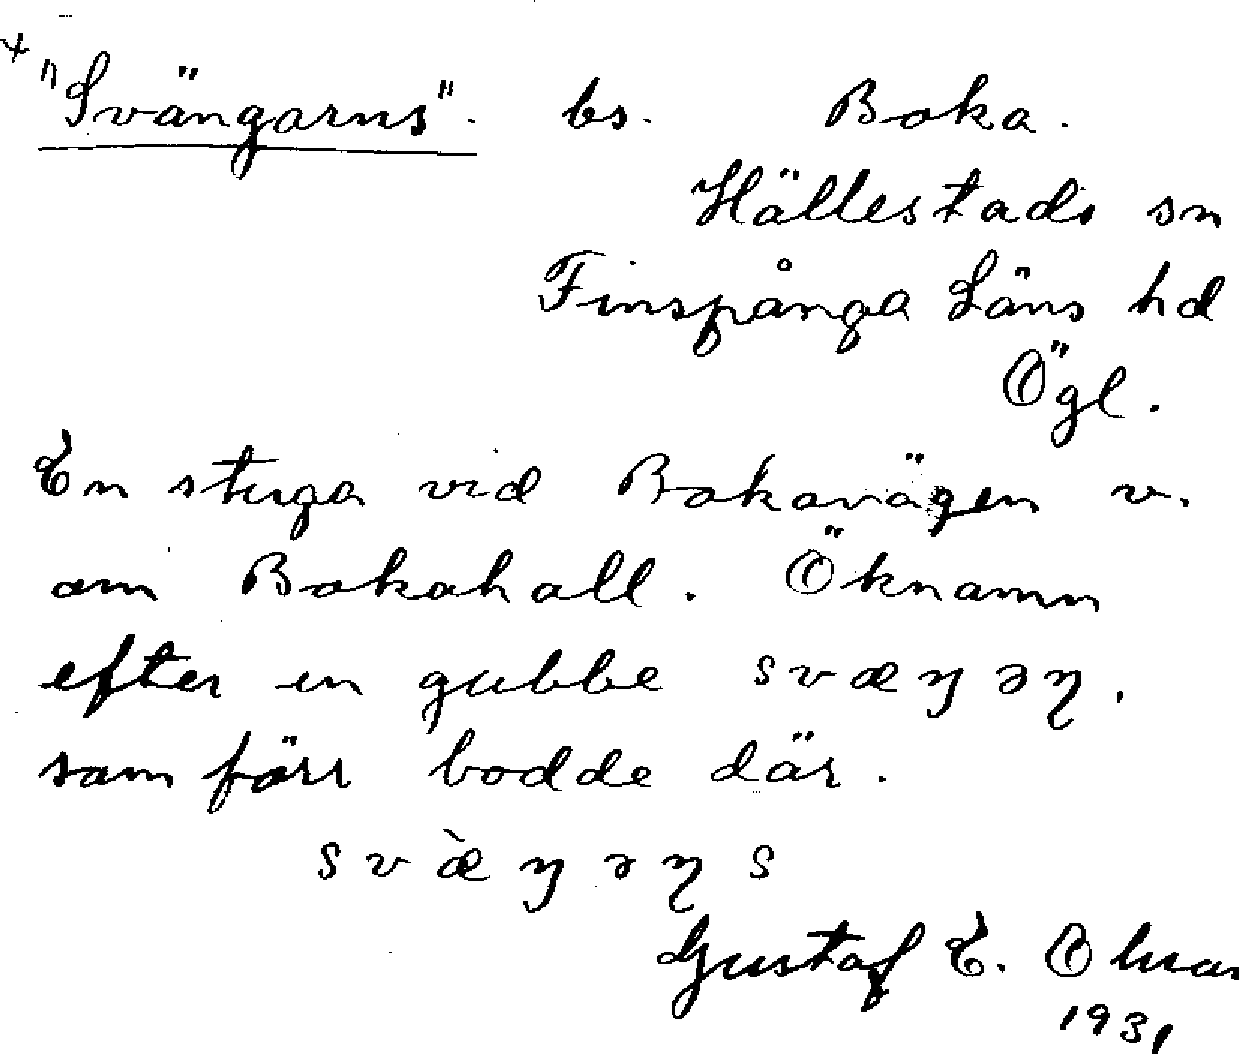 + "Svängarns". bs. Boka.
Hällestads sn
Finspånga Läns hd
Ögl.
En stuga vid Bokavägen v.
om Bokahall. Öknamn
efter en gubbe svæŋəɳ.
som förr bodde där.
svæ̀ŋəɳs
Gustaf E.
1931